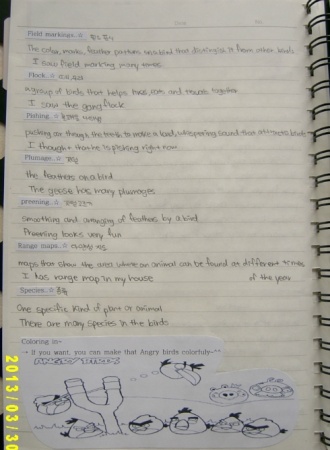 Date No.
Field markings. ☆
The color, marks, feather pattern on a bird that distinguish it from other birds
I saw field marking many times
Flock. ☆
a group of birds that helps eats and travels together
I saw the gang flock
Pishing. ☆
pushing air though the teeth to make a loud, whispering sound that attracts birds
I thought that he is pishing right now
Plumage. ☆
the feathers on a bird
The geese has many plumages
preening. ☆
smoothing and arranging of feathers by a bird
Preening looks very fun
Range maps. ☆
maps that show the area where an animal can be found at different times
I has range map in my house of the year
Species. ☆
one specific kind of plant or animal
There are many species in the birds
Coloring is~
→ if you want, you can make that Angry birds colorfuly~^^
ANGRY BIRDS
2013/03/30